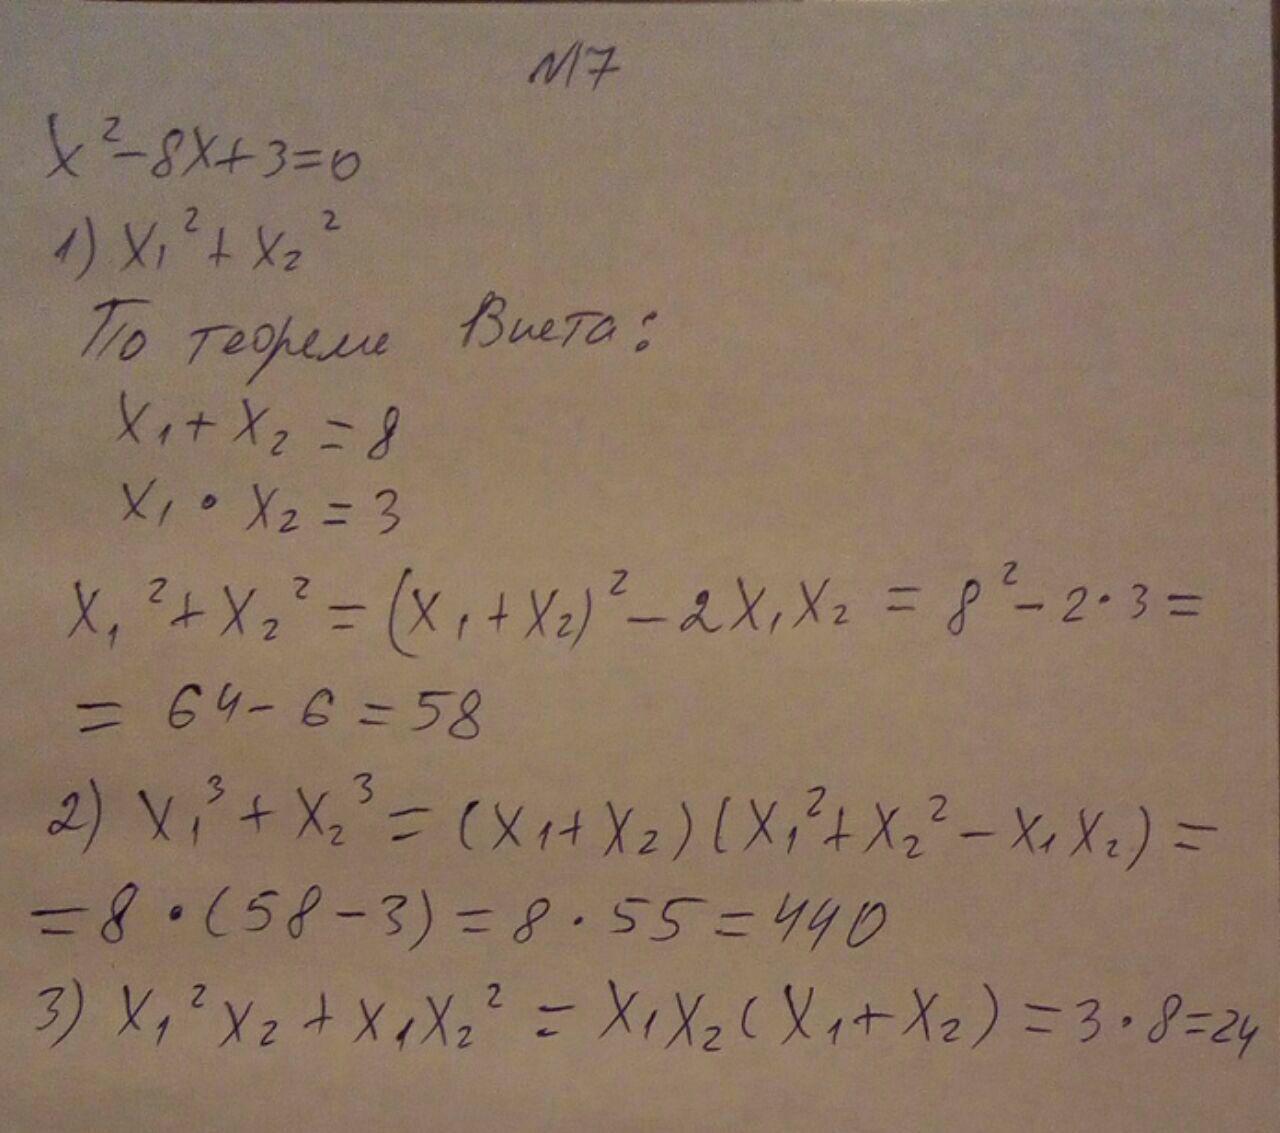 №7
x²-8x+3=0
1) x₁²+x₂²
По теореме Виета:
x₁+x₂=8
x₁•x₂=3
x₁²+x₂²=(x₁+x₂)²-2x₁x₂=8²-2·3=
=64-6=58
2) x₁³+x₂³=(x₁+x₂)(x₁²+x₂²-x₁x₂)=
=8•(58-3)=8·55=440
3) x₁²x₂+x₁x₂²=x₁x₂(x₁+x₂)=3·8=24